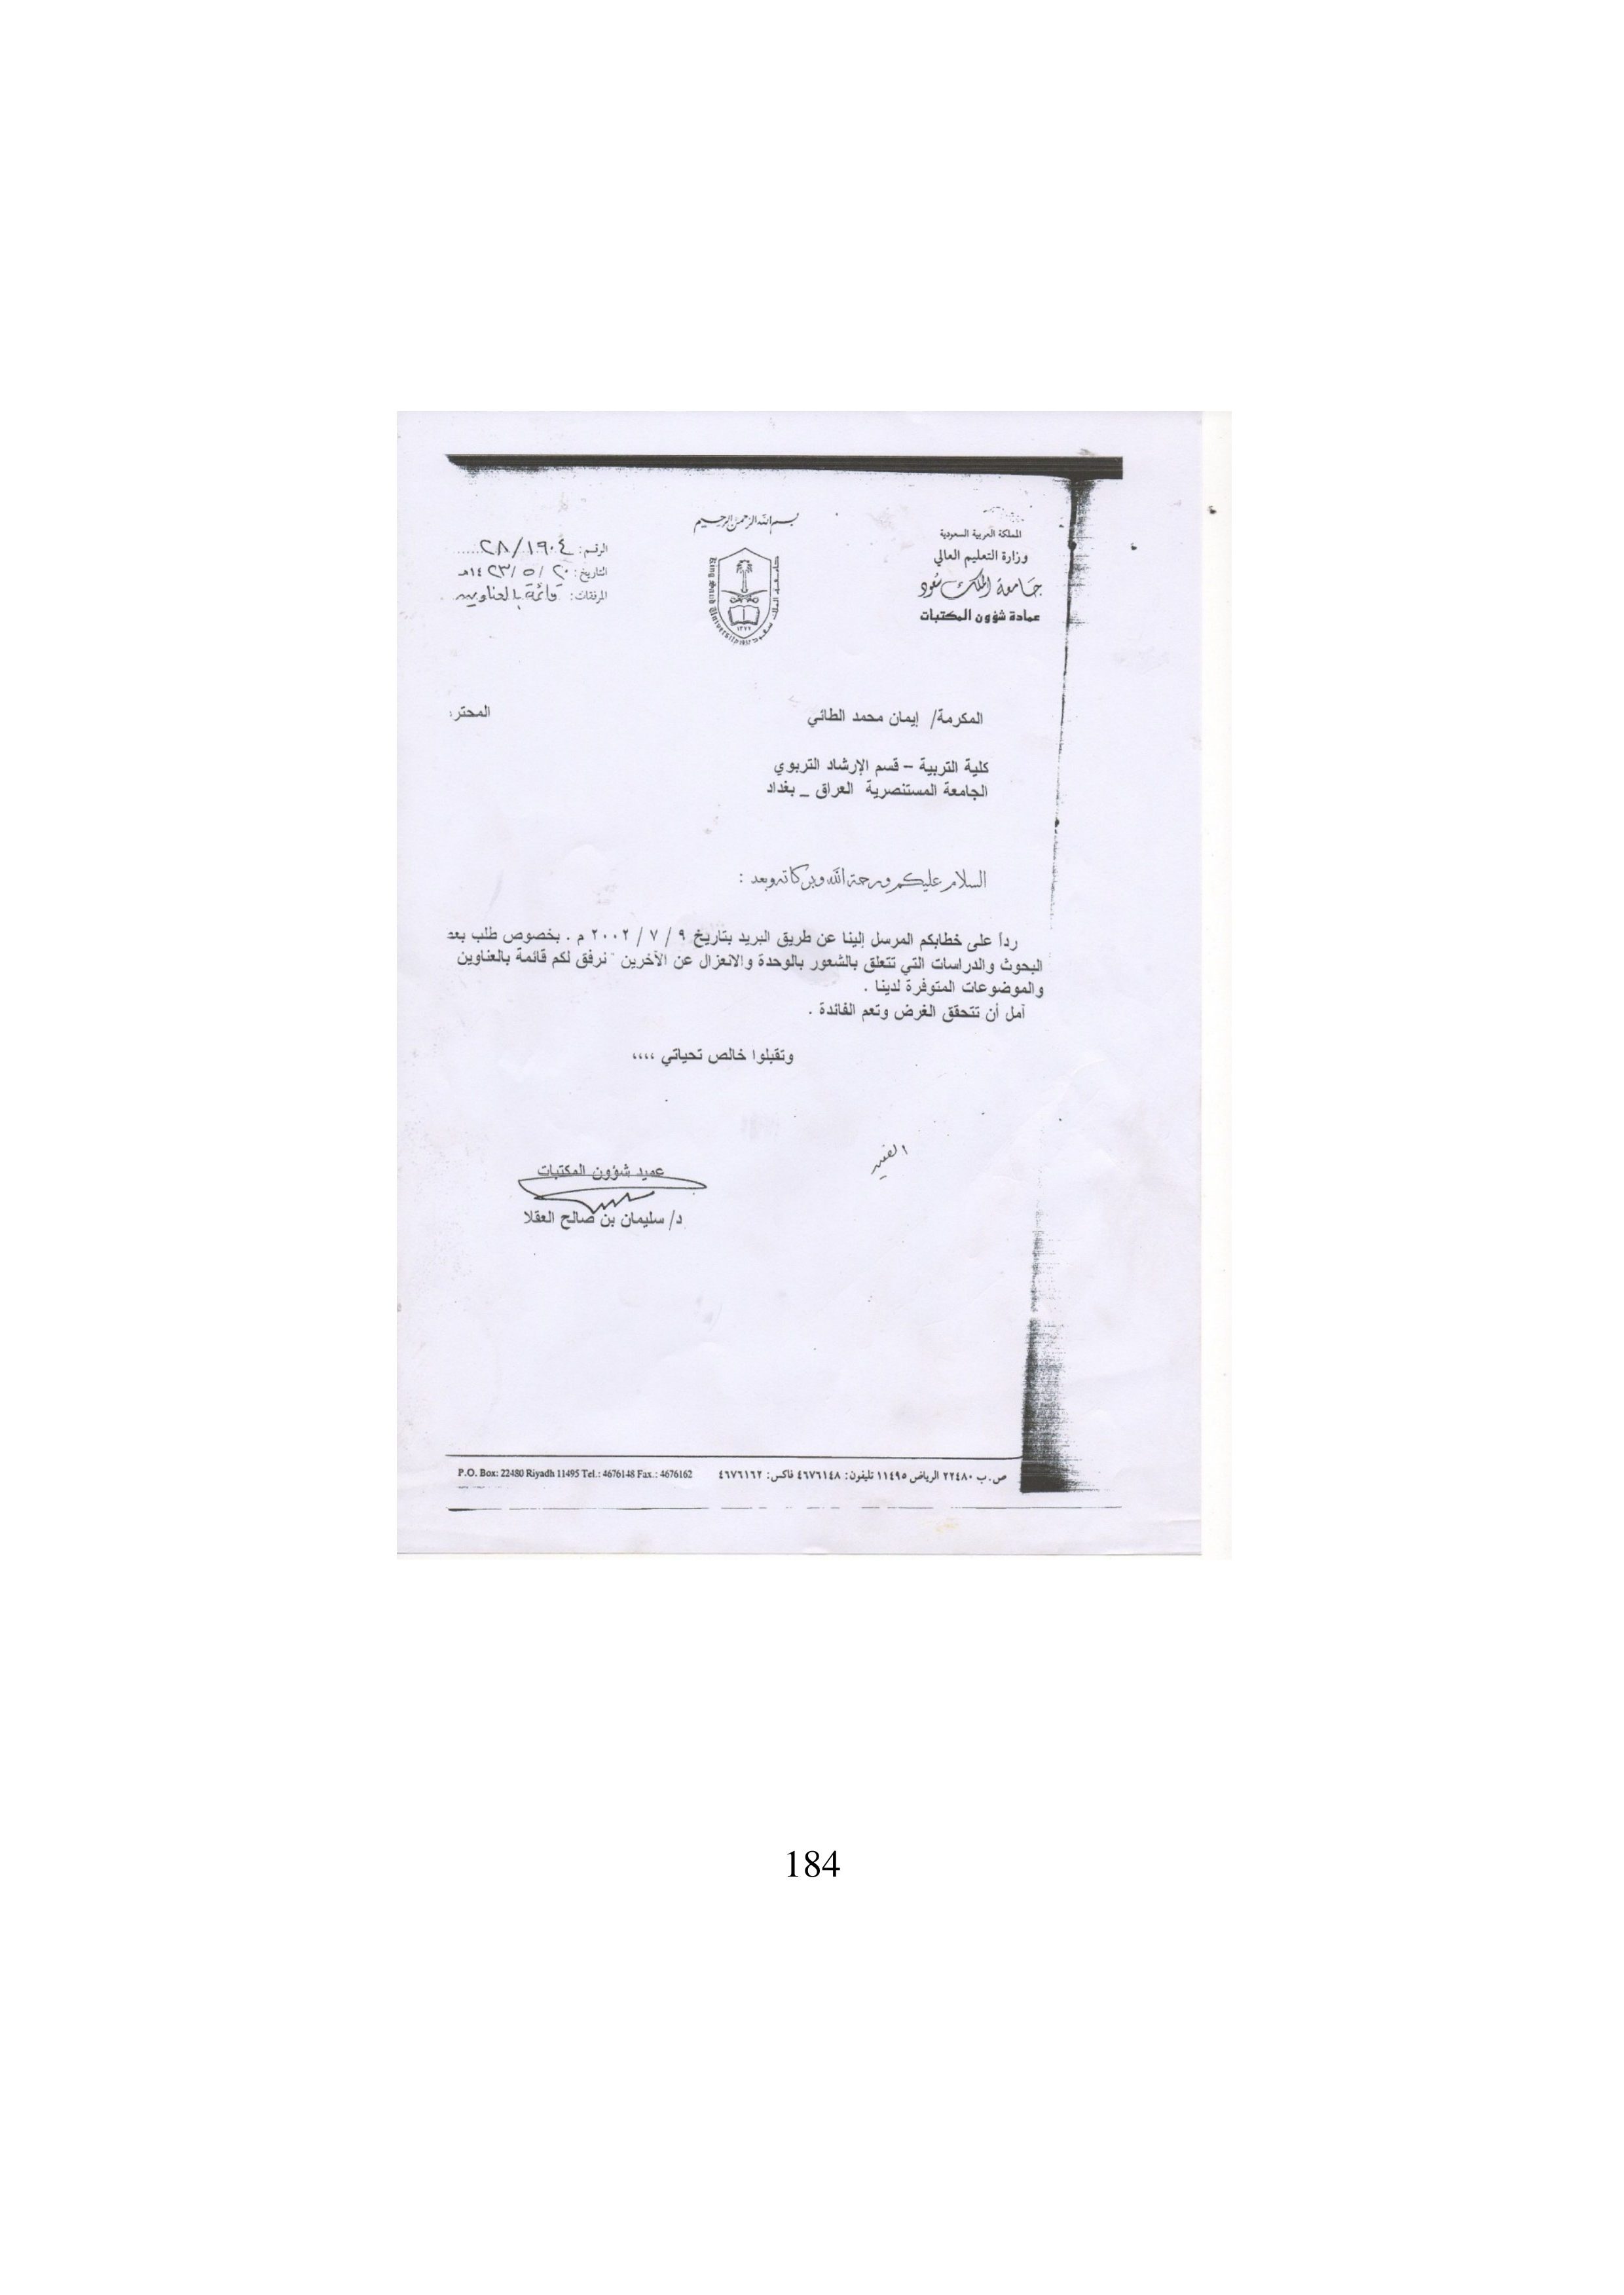 بسم الله الرحمن الرحيم
المملكة العربية السعودية
وزارة التعليم العالي
جامعة الملك سعود
عمادة شؤون المكتبات
King Saud University 1957
جامعة الملك سعود
١٣٧٧
الرقم: ٢٨/١٩٠٤
التاريخ: ٢٠ / ٥ / ١٤٢٣هـ
المرفقات: قائمة بالعناوين
المكرمة/ إيمان محمد الطائي المحتر
كلية التربية – قسم الإرشاد التربوي
الجامعة المستنصرية العراق _ بغداد
السلام عليكم ورحمة الله وبركاته وبعد :
رداً على خطابكم المرسل إلينا عن طريق البريد بتاريخ ٩ / ٧ / ٢٠٠٢ م . بخصوص طلب بعض
البحوث والدراسات التي تتعلق بالشعور بالوحدة والانعزال عن الآخرين " نرفق لكم قائمة بالعناوين
والموضوعات المتوفرة لدينا .
آمل أن تتحقق الغرض وتعم الفائدة .
وتقبلوا خالص تحياتي ،،،،
عميد شؤون المكتبات
د/ سليمان بن صالح العقلا
ص.ب ٢٢٤٨٠ الرياض ١١٤٩٥ تليفون: ٤٦٧٦١٤٨ فاكس: ٤٦٧٦١٦٢
P.O. Box: 22480 Riyadh 11495 Tel.: 4676148 Fax.: 4676162
184